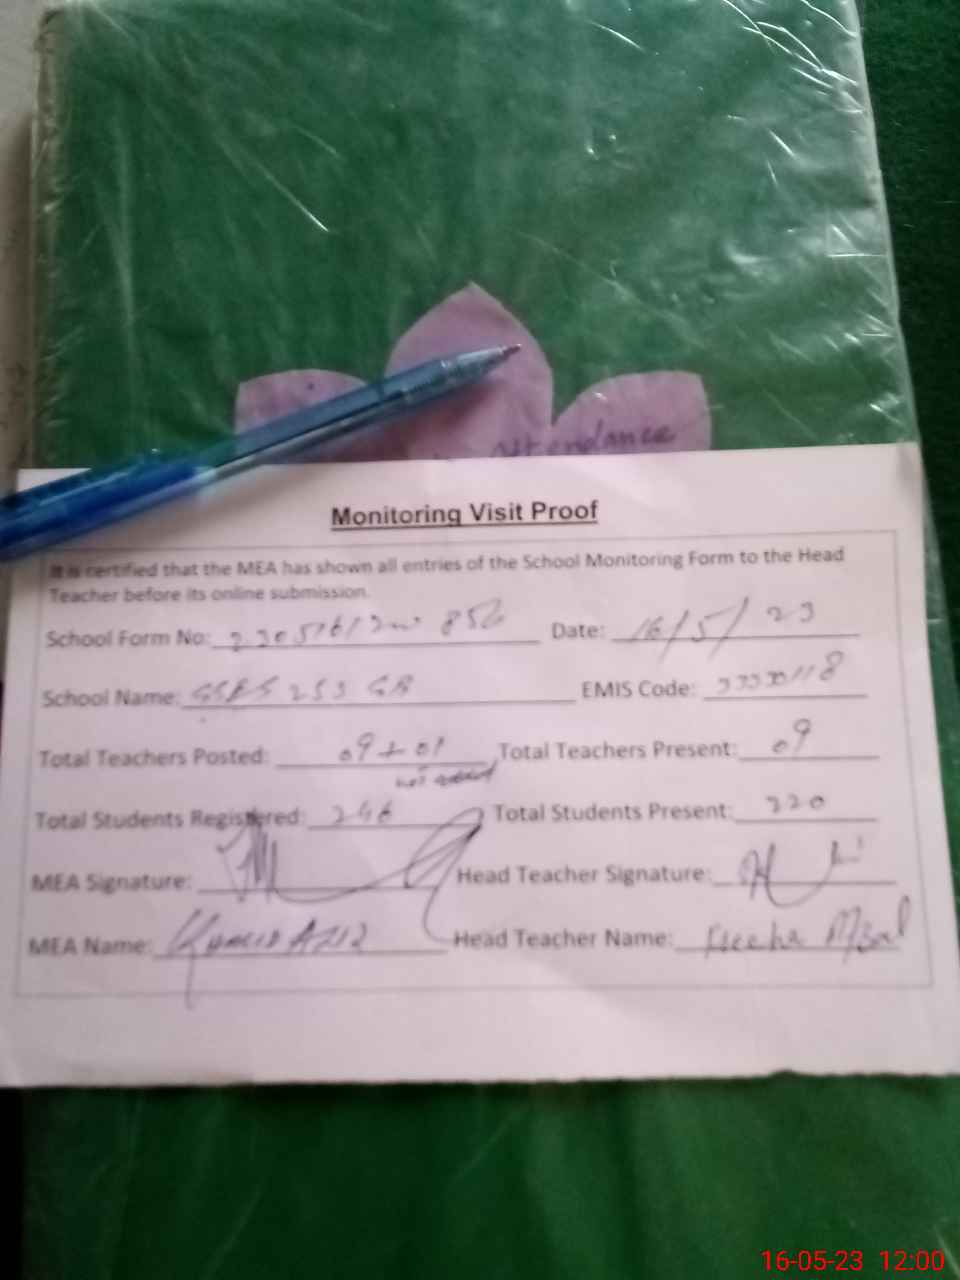 attendance
Monitoring Visit Proof
It is certified that the MEA has shown all entries of the School Monitoring Form to the Head
Teacher before its online submission.
School Form No: Date: 16/5/23
School Name: 253 GB EMIS Code:
Total Teachers Posted: 09+01 Total Teachers Present: 09
not added
Total Students Registered: 246 Total Students Present: 220
MEA Signature: Head Teacher Signature:
MEA Name: Head Teacher Name:
16-05-23 12:00